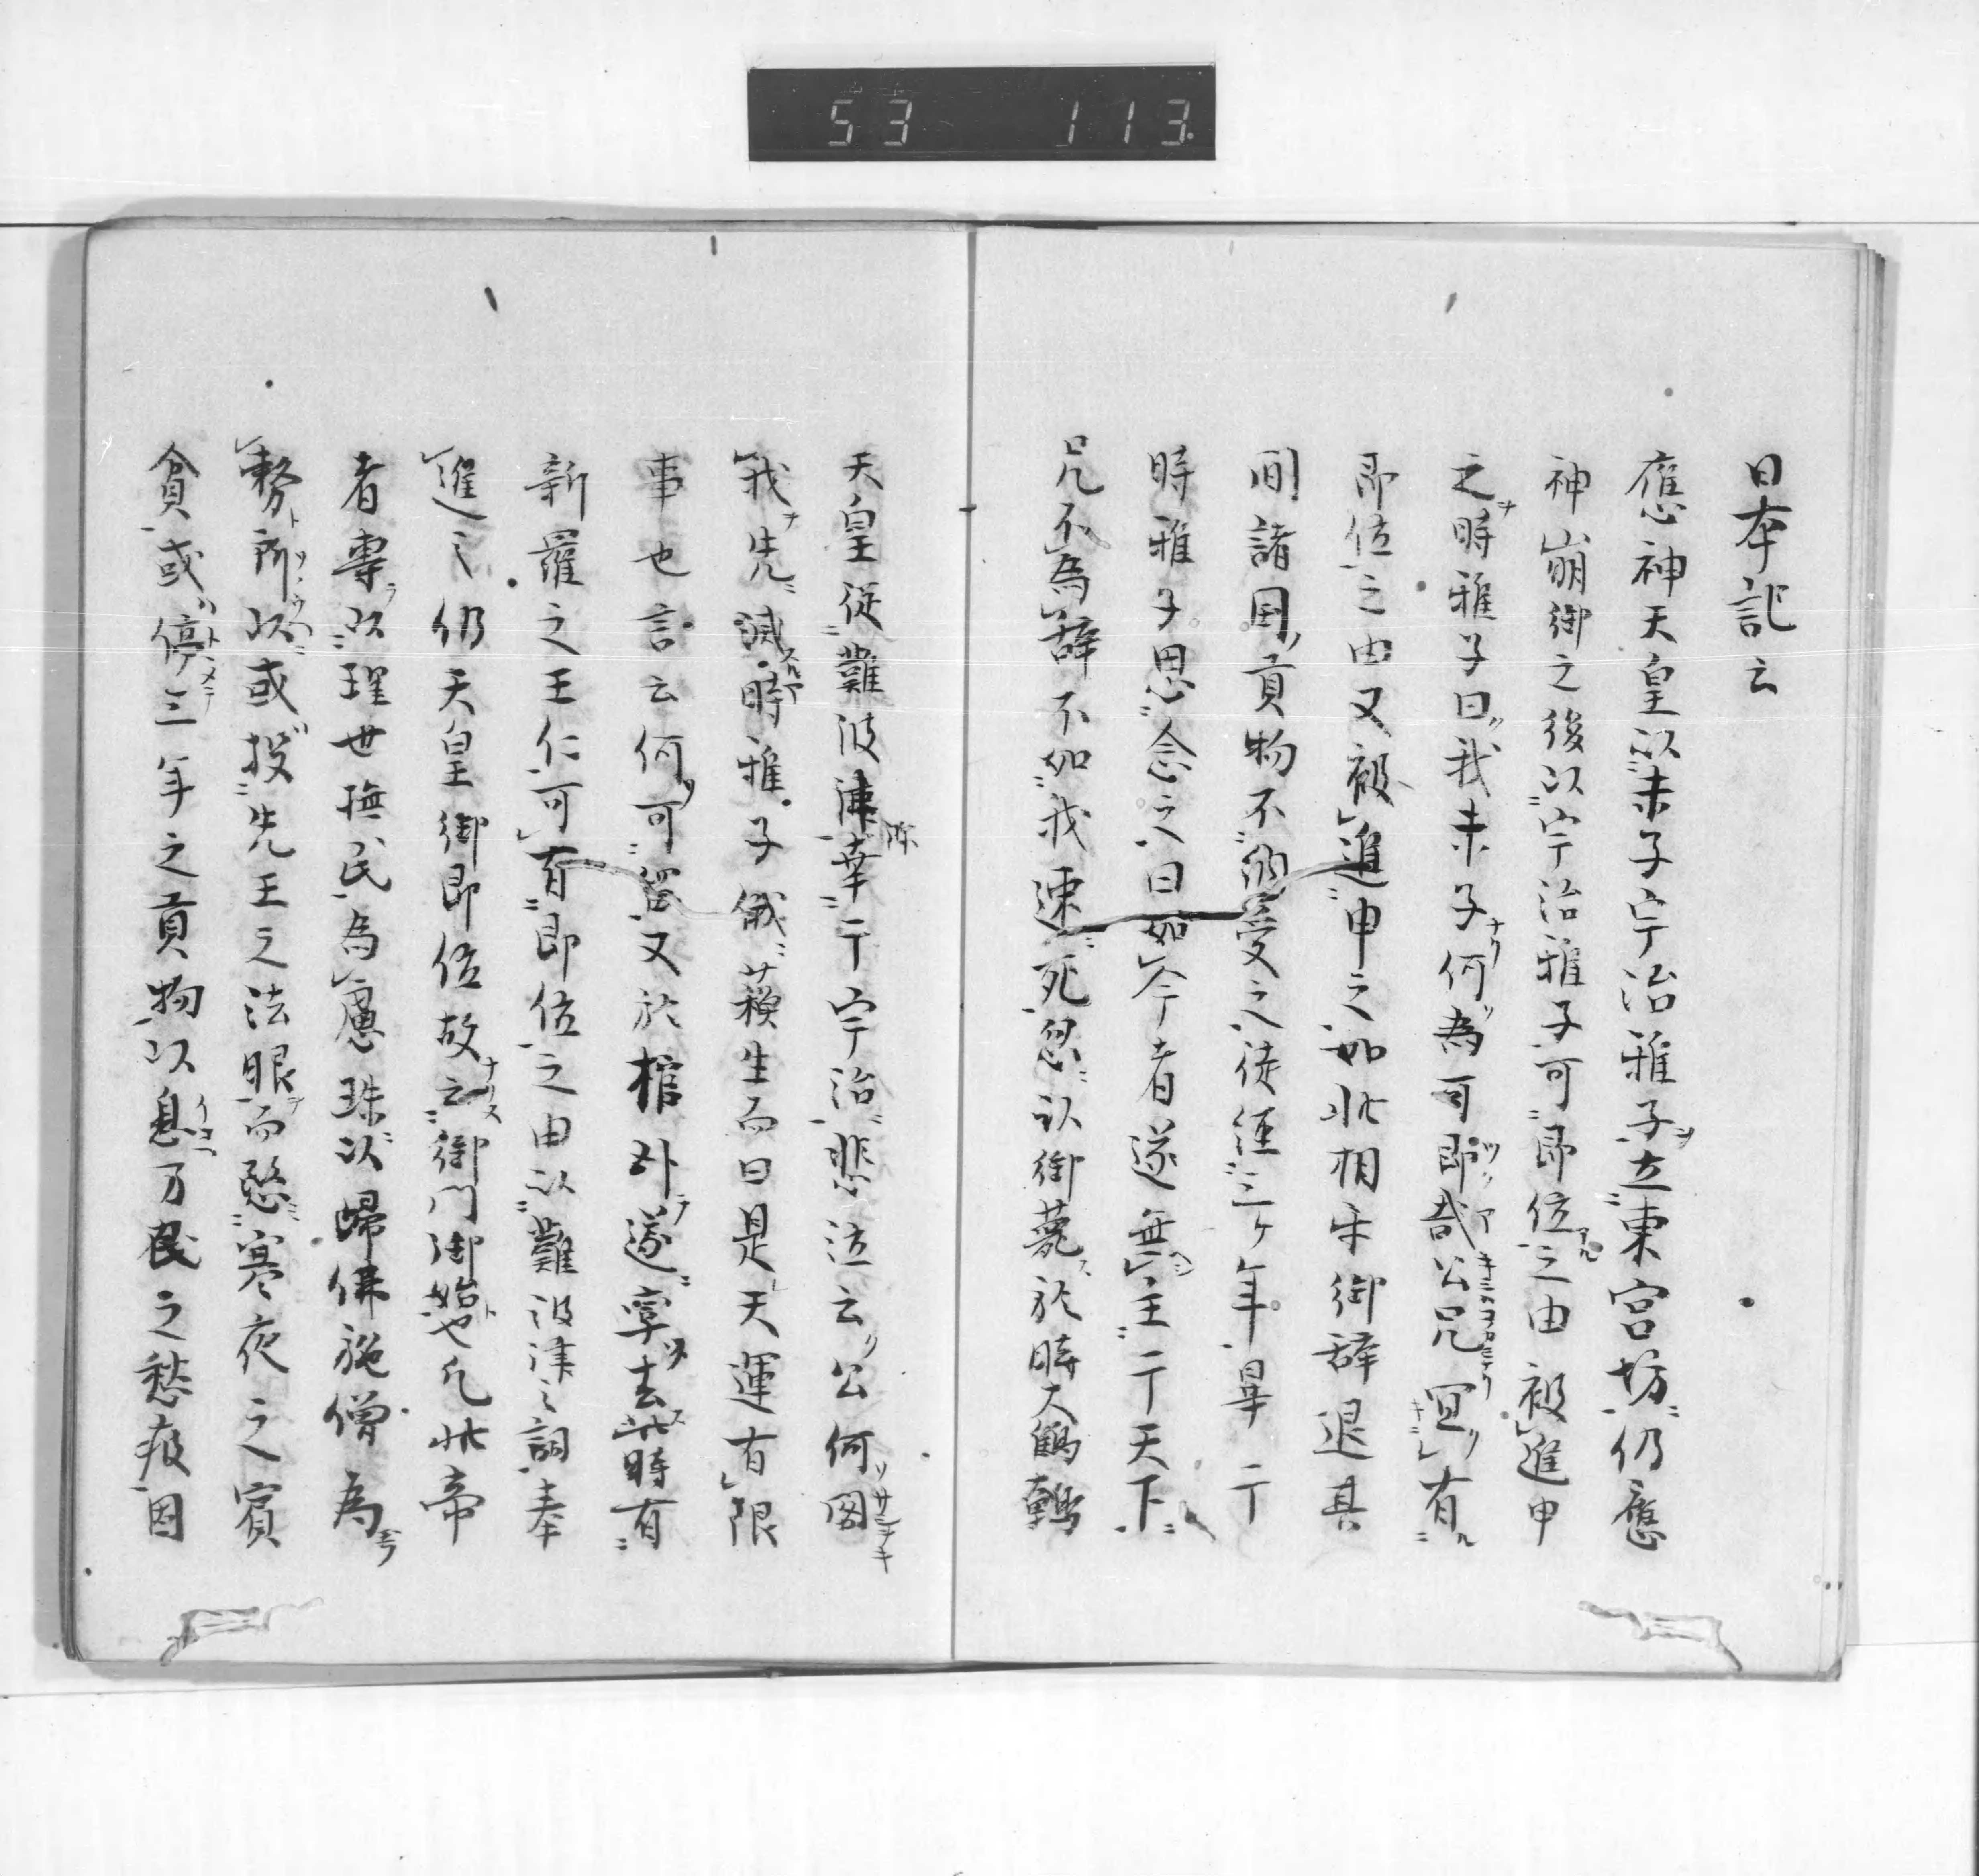 53 113
日本記云
應神天皇以未子宇治雅子立東宮坊仍應
神崩御之後以宇治雅子可即位之由被進申
之時雅子曰我未子何為可即哉公兄冝有
即位之由又被進申之如此相牟御辞退其
間諸国貢物不納受之徒經三ケ年畢于
時雅子思念之曰如今者遂無主于天下
兄不為辞不如我速死忽以御薨於時大鷦鷯
天皇従難波津幸于宇治悲泣云公何図
我先滅時雅子俄蘓生而曰是天運有限
事也言云何可留又於棺卧遂寧去此時有
新羅之王仁可有即位之由以難波津之詞奉
進之仍天皇御即位故云御門御始也凡此帝
者專以理世撫民為慮珠以歸佛施僧為
務所以或投先王之法眼而愍寒夜之寳
貪或停三年之貢物以息万民之愁痕因